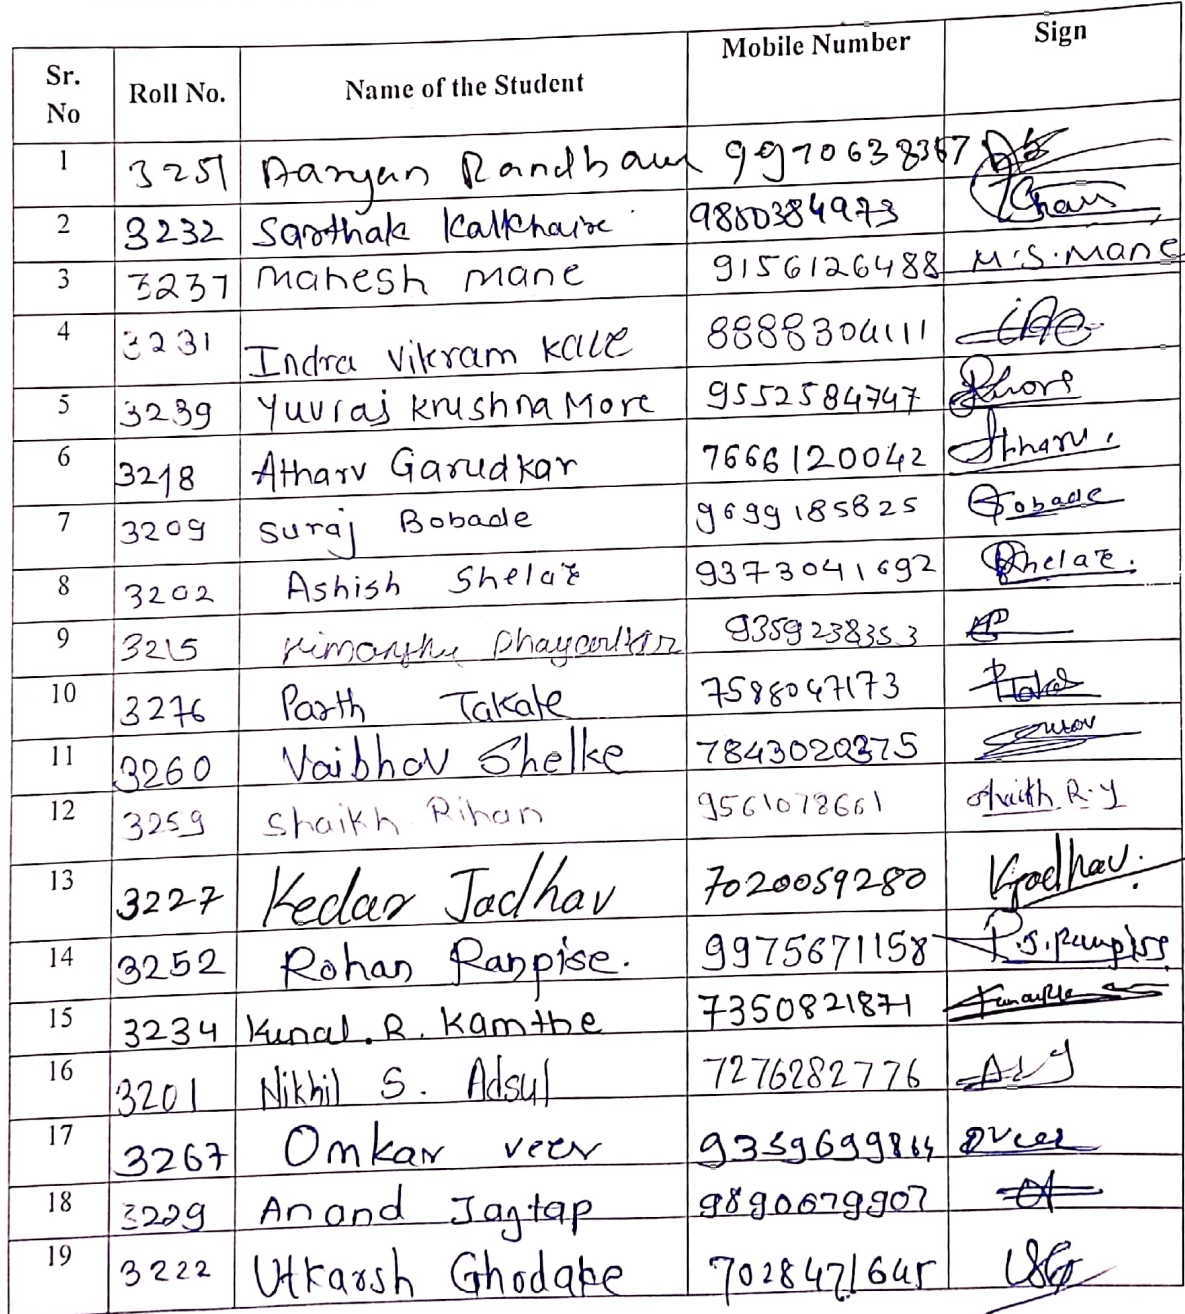 Sr. No Roll No. Name of the Student Mobile Number Sign
1 3251 Aaryan Randhawa 9970638367
2 3232 Sarthak Kalkhaire 9850384973
3 3237 Mahesh Mane 9156126488 M.S.Mane
4 3231 Indra Vikram Kale 8888304111
5 3239 Yuvraj Krushna More 9552584747
6 3218 Atharv Garudkar 7666120042 Atharv.
7 3209 Suraj Bobade 9699185825 Bobade
8 3202 Ashish Shelar 9373041692 Shelar.
9 3215 9359238353
10 3276 Parth Takale 7588047173
11 3260 Vaibhav Shelke 7843020375
12 3259 Shaikh Rihan 9561078661 Shaikh R.Y
13 3227 Kedar Jadhav 7020059280 KJadhav.
14 3252 Rohan Ranpise. 9975671158 R.S.Ranpise
15 3234 Kunal.R.Kamthe 7350821871
16 3201 Nikhil S. Adsul 7276282776
17 3267 Omkar veer 9359699864 OVeer
18 3229 Anand Jagtap 9890679907
19 3222 Utkarsh Ghodake 7028471645